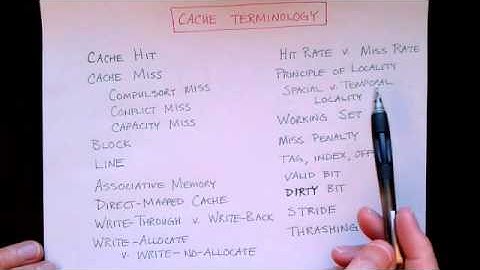 CACHE TERMINOLOGY
CACHE HIT
CACHE MISS
COMPULSORY MISS
CONFLICT MISS
CAPACITY MISS
BLOCK
LINE
ASSOCIATIVE MEMORY
DIRECT-MAPPED CACHE
WRITE-THROUGH V. WRITE-BACK
WRITE-ALLOCATE
V. WRITE-NO-ALLOCATE
HIT RATE V. MISS RATE
PRINCIPLE OF LOCALITY
SPACIAL V. TEMPORAL
LOCALITY
WORKING SET
MISS PENALTY
TAG, INDEX, OFF
VALID BIT
DIRTY BIT
STRIDE
THRASHING